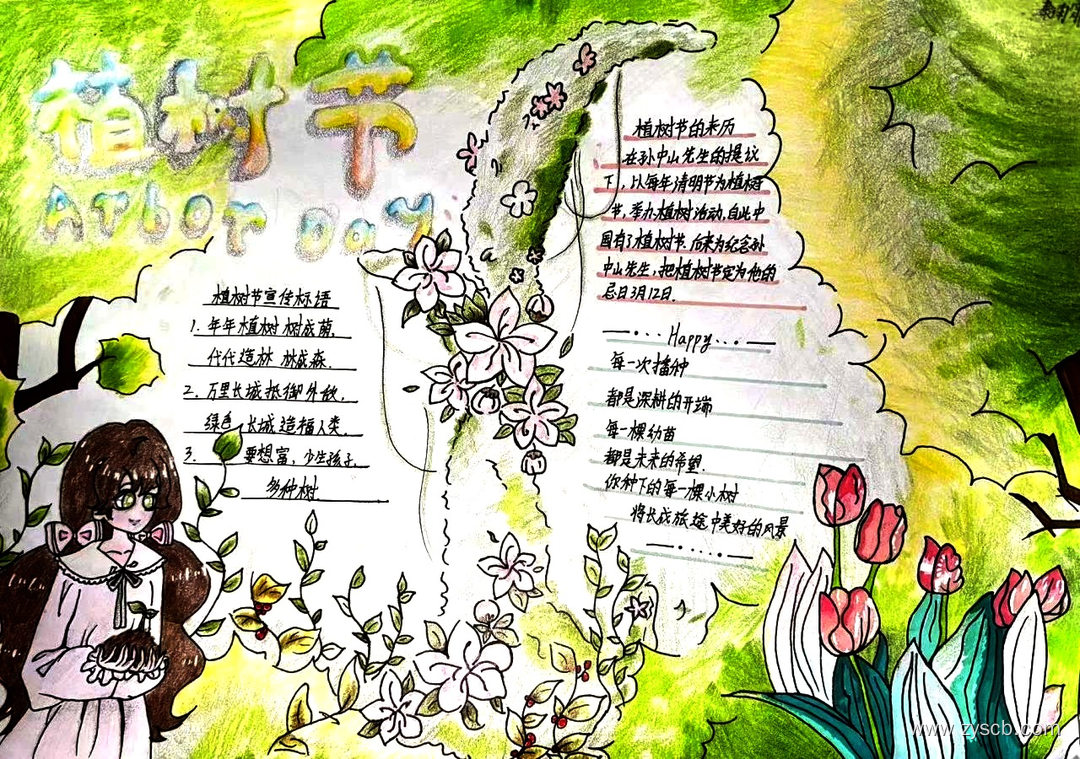 植树节
Arbor Day
植树节宣传标语
1. 年年植树 树成荫.
代代造林 林成森.
2. 万里长城 抵御外敌.
绿色长城 造福人类.
3. 要想富, 少生孩子.
多种树
植树节的来历
在孙中山先生的提议
下, 以每年清明节为植树
节, 举办植树活动, 自此中
国有了植树节. 后来为纪念孙
中山先生, 把植树节定为他的
忌日3月12日.
Happy
每一次播种
都是深耕的开端
每一棵幼苗
都是未来的希望.
你种下的每一棵小树
将长成旅途中美好的风景
www.zyscb.com